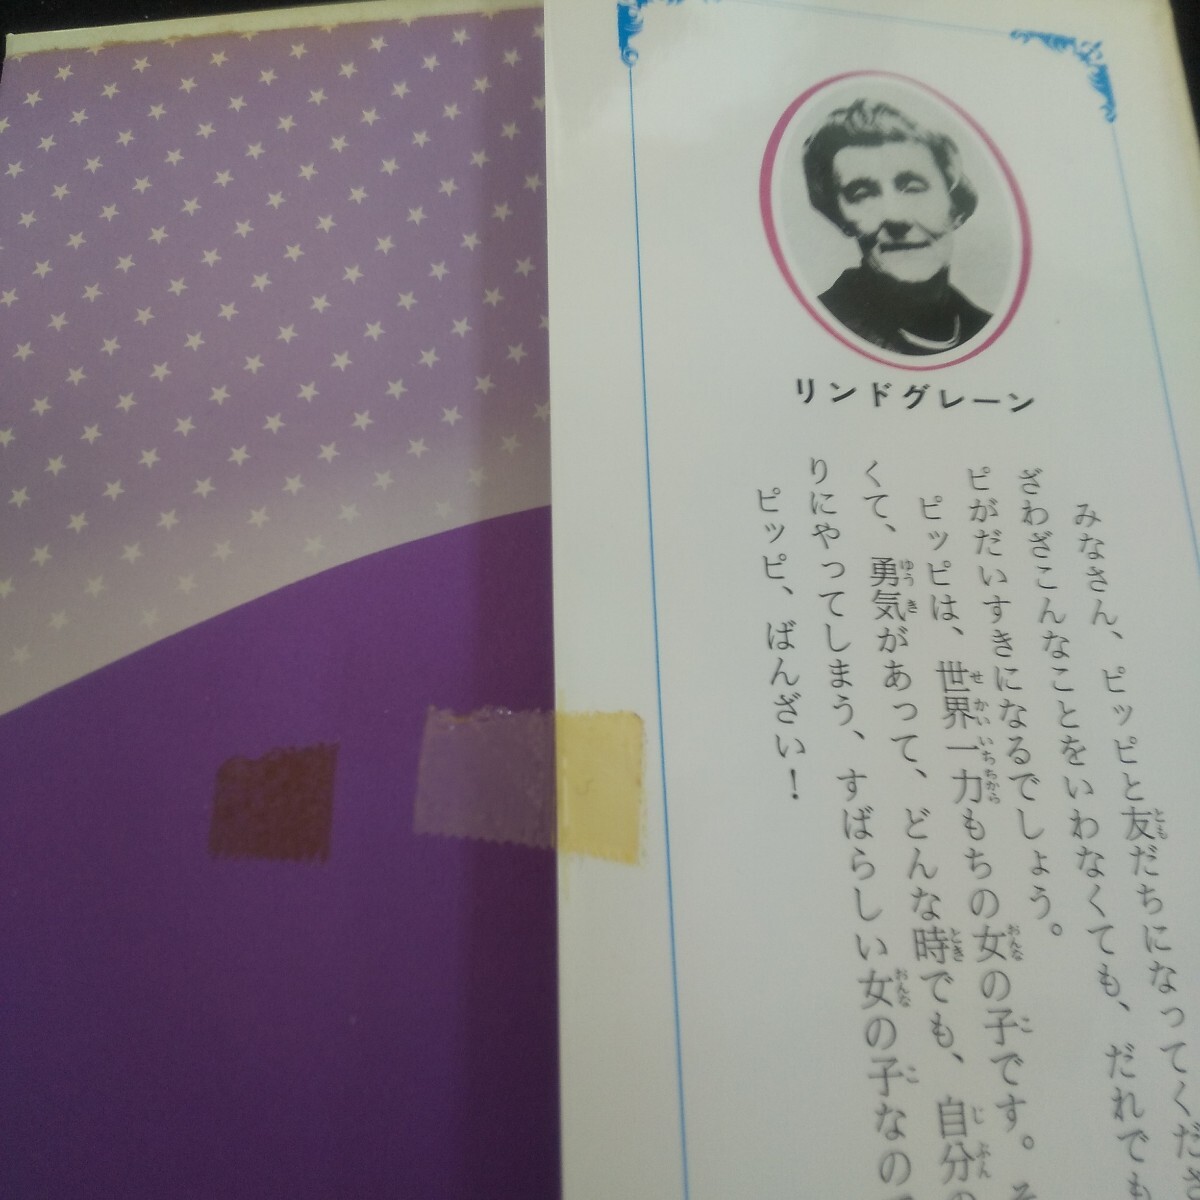 リンドグレーン
みなさん、ピッピと友だちになってくださ
ざわざこんなことをいわなくても、だれでも
ピがだいすきになるでしょう。
ピッピは、世界一力もちの女の子です。そ
くて、勇気があって、どんな時でも、自分の
りにやってしまう、すばらしい女の子なの
ピッピ、ばんざい!